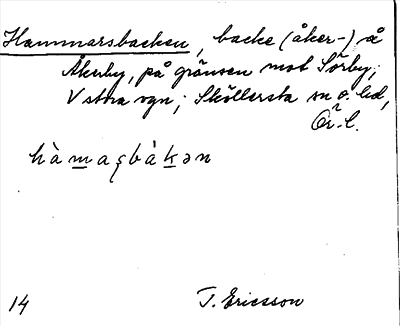 Hammarsbacken, backe (åker-) å
Åkerby, på gränsen mot Sörby;
V stra sgn; Sköllersta sn o. hd,
Ör. l.
hàmaşbákən
14 T. Ericsson